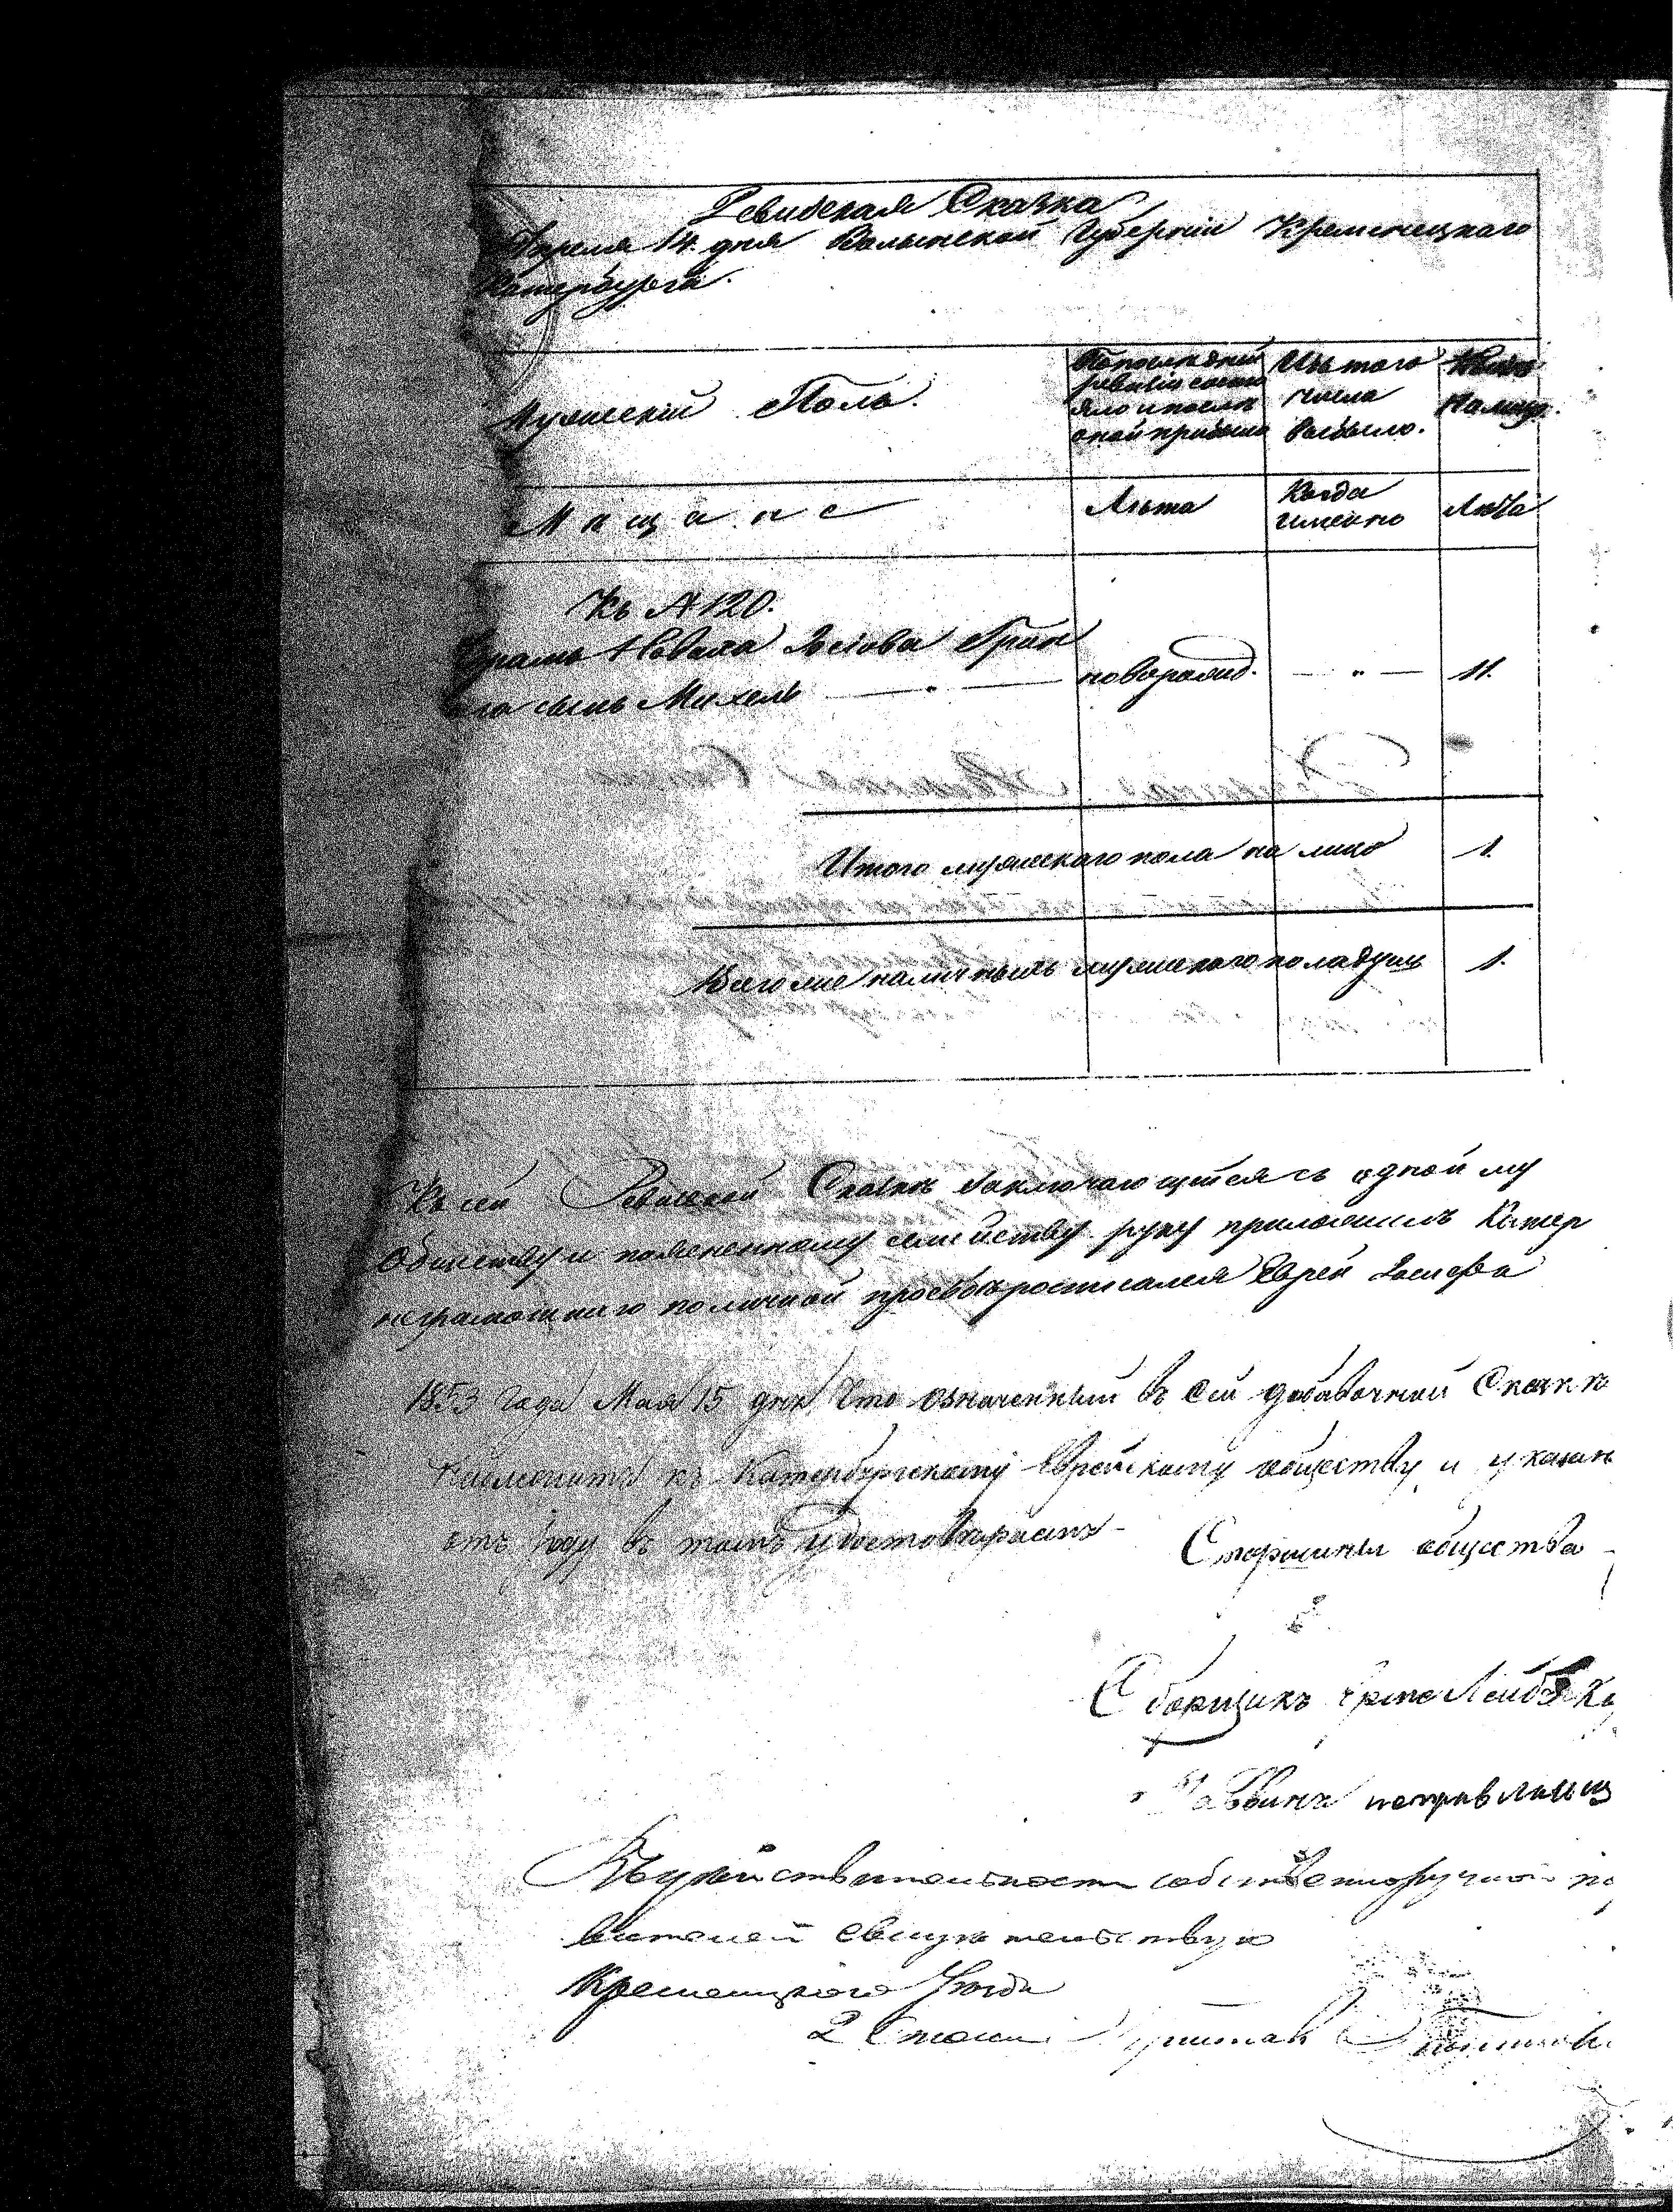 Ревизская Сказка
Апреля 14. дня Волынской Губерніи Кременецкаго
Катербурга.
Мужескій Полъ.
По послѣдней
ревизіи состо
яло и послѣ
оной прибыло
Изъ того
числа
выбыло.
Нынѣ
на лицо.
Мѣщане
Лѣта
Когда
именно
Лѣта
Къ № 120.
Новаха Грин
его сынъ Михель
новорожд.
11.
Итого мужескаго пола на лицо
1.
Всего же наличныхъ мужескаго пола душъ
1.
Къ сей Ревизской Сказкѣ заключающейся съ одной му
Обществу и поясненному семейству руку приложилъ Катер
неграмотнаго по личной просьбѣ росписался Еврей
1853 Года Мая 15 дня Что означенный въ сей добавочной Сказкѣ
къ Катербургскому Еврейскому обществу и указан
въ томъ удостовѣряемъ
Старшины общества
Сборщикъ Лейба
Раввинъ исправляющ
собственноручной по
свидѣтельствую
Кременецкаго Уѣзда
2 Стана